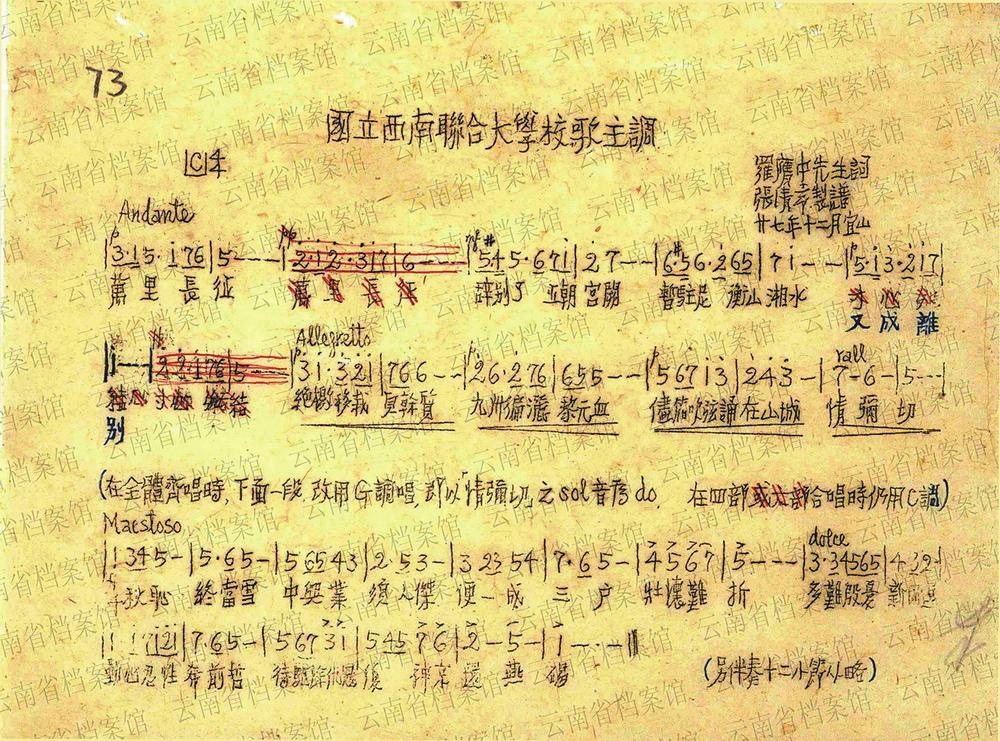 73
國立西南聯合大學校歌主調
C 4
羅膺中先生詞
張清常製譜
廿七年十二月宜山
Andante
3·15·176|5---|2·12·317|6---|545·671|27--|6·56·265|71--|5·13·217|
萬里長征 萬里長征 辭别了 五朝宮闕 暫駐足 衡山湘水 又成離
1---|22176|5---|31·321|766--|26·276|655--|56713|243-|7-6-|5---
Allegretto
rall
别 絕徼移栽 楨幹質 九州遍灑 黎元血 儘笳吹弦誦在山城 情彌切
(在全體齊唱時,下面一段,改用G調唱,即以「情彌切」之sol音為do. 在四部或六部合唱時仍用C調)
Maestoso
dolce
1345-|5·65-|56543|2·53-|32354|7·65-|4567|5---|3·34565|432-|
千秋恥 終當雪 中興業 須人傑 便一成三户 壯懷難折 多難殷憂新國運
1·17121|7·65-|56731|54576|2-5-|1---||
動心忍性希前哲 待驅除仇寇復神京還燕碣
(另伴奏十二小節从略)
云南省档案馆